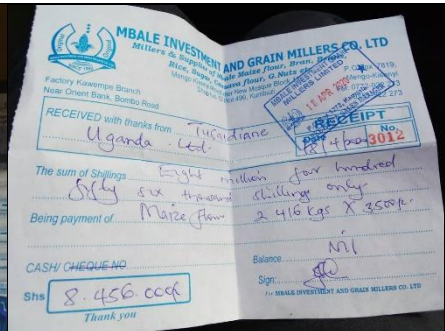 MBALE INVESTMENT AND GRAIN MILLERS CO. LTD
Millers & Suppliers of Maize flour, Bran,
Rice, Sugar, Cassava flour, G.Nuts
Factory Kawempe Branch
Near Orient Bank, Bombo Road
RECEIPT
No. 3012
RECEIVED with thanks from Tusaidiane
Uganda Ltd.
The sum of Shillings Eight million four hundred
fifty six thousand shillings only
Being payment of Maize flour 2 416 kgs X 3500/=
CASH/ CHEQUE NO
Balance Nil
Shs 8.456.000/=
Sign:
For MBALE INVESTMENT AND GRAIN MILLERS CO. LTD
Thank you